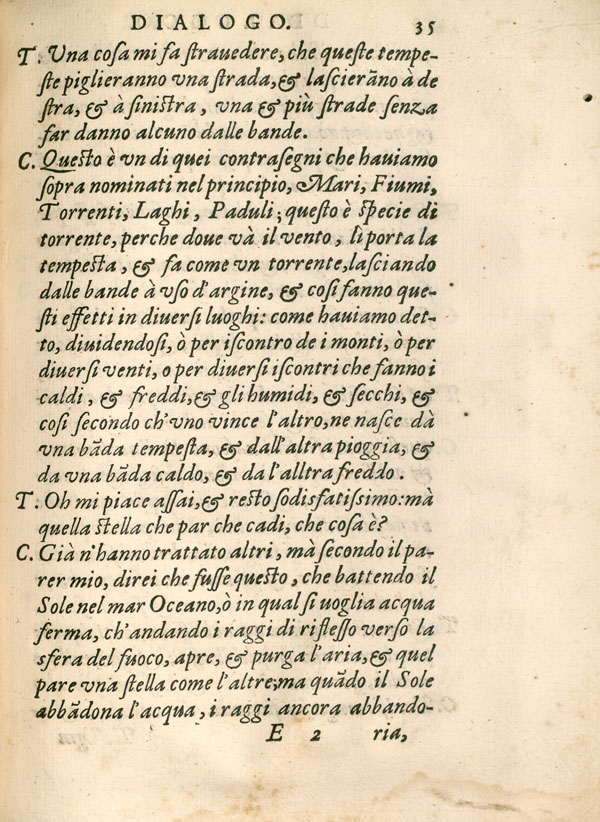 DIALOGO. 35
T. Una cosa mi fa strauedere, che queste tempe-
ste piglieranno vna strada, & lascierāno à de
stra, & à sinistra, vna & più strade senza
far danno alcuno dalle bande.
C. Questo è vn di quei contrasegni che hauiamo
sopra nominati nel principio, Mari, Fiumi,
Torrenti, Laghi, Paduli; questo è specie di
torrente, perche doue và il vento, lì porta la
tempesta, & fa come vn torrente, lasciando
dalle bande à vso d'argine, & cosi fanno que-
sti effetti in diuersi luoghi: come hauiamo det-
to, diuidendosi, ò per iscontro de i monti, ò per
diuersi venti, o per diuersi iscontri che fanno i
caldi, & freddi, & gli humidi, & secchi, &
cosi secondo ch'vno vince l'altro, ne nasce dà
vna bāda tempesta, & dall'altra pioggia, &
da vna bāda caldo, & da l'alltra freddo.
T. Oh mi piace assai, & resto sodisfatissimo: mà
quella stella che par che cadi, che cosa è?
C. Già n'hanno trattato altri, mà secondo il pa-
rer mio, direi che fusse questo, che battendo il
Sole nel mar Oceano, ò in qual si uoglia acqua
ferma, ch'andando i raggi di riflesso verso la
sfera del fuoco, apre, & purga l'aria, & quel
pare vna stella come l'altre; ma quādo il Sole
abbādona l'acqua, i raggi ancora abbando-
E 2 ria,